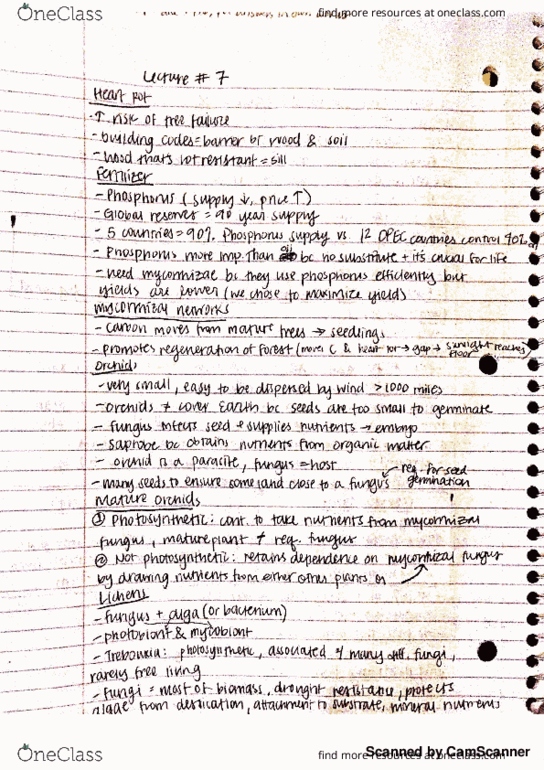 OneClass
find more resources at oneclass.com
Lecture # 7
Heart Rot
-↑ risk of tree failure
- building codes = barrier bt wood & soil
- Wood thats rot resistant = sill
Fertilizer
- Phosphorus (supply ↓, price ↑)
- Global reserves = 90 year supply
- 5 countries = 90% Phosphorus supply vs 12 OPEC countries control 40%
- Phosphorus more imp than oil bc no substitute + it's crucial for life
- need mycorrhizae bc they use phosphorus efficiently but
yields are lower (we chose to maximize yield)
mycorrhizal networks
- carbon moves from mature trees → seedlings
- promotes regeneration of forest (moves C & heart rot → gap → sunlight reaches
floor)
Orchids
- very small, easy to be dispersed by wind >1000 miles
- orchids ≠ cover Earth bc seeds are too small to germinate
- fungus infects seed & supplies nutrients → embryo
- saprobe bc obtains nutrients from organic matter
- orchid is a parasite, fungus = host
- many seeds to ensure some land close to a fungus
req. for seed
germination
Mature Orchids
① Photosynthetic: cont. to take nutrients from mycorrhizal
fungus, mature plant ≠ req. fungus
② Not photosynthetic: retains dependence on mycorrhizal fungus
by drawing nutrients from either other plants or
Lichens
- fungus + alga (or bacterium)
- photobiont & mycobiont
- Trebouxia: photosynthetic, associated w/ many diff. fungi,
rarely free living
- fungi = most of biomass, drought resistance, protects
algae from desiccation, attachment to substrate, mineral nutrients
OneClass
find more resources at oneclass.com
Scanned by CamScanner